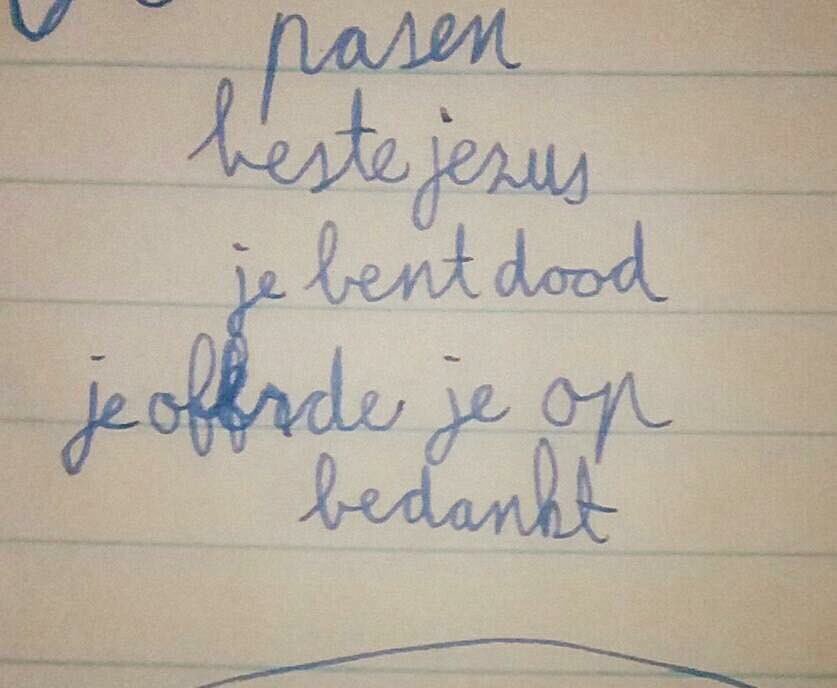 pasen
beste jezus
je bent dood
je offerde je op
bedankt